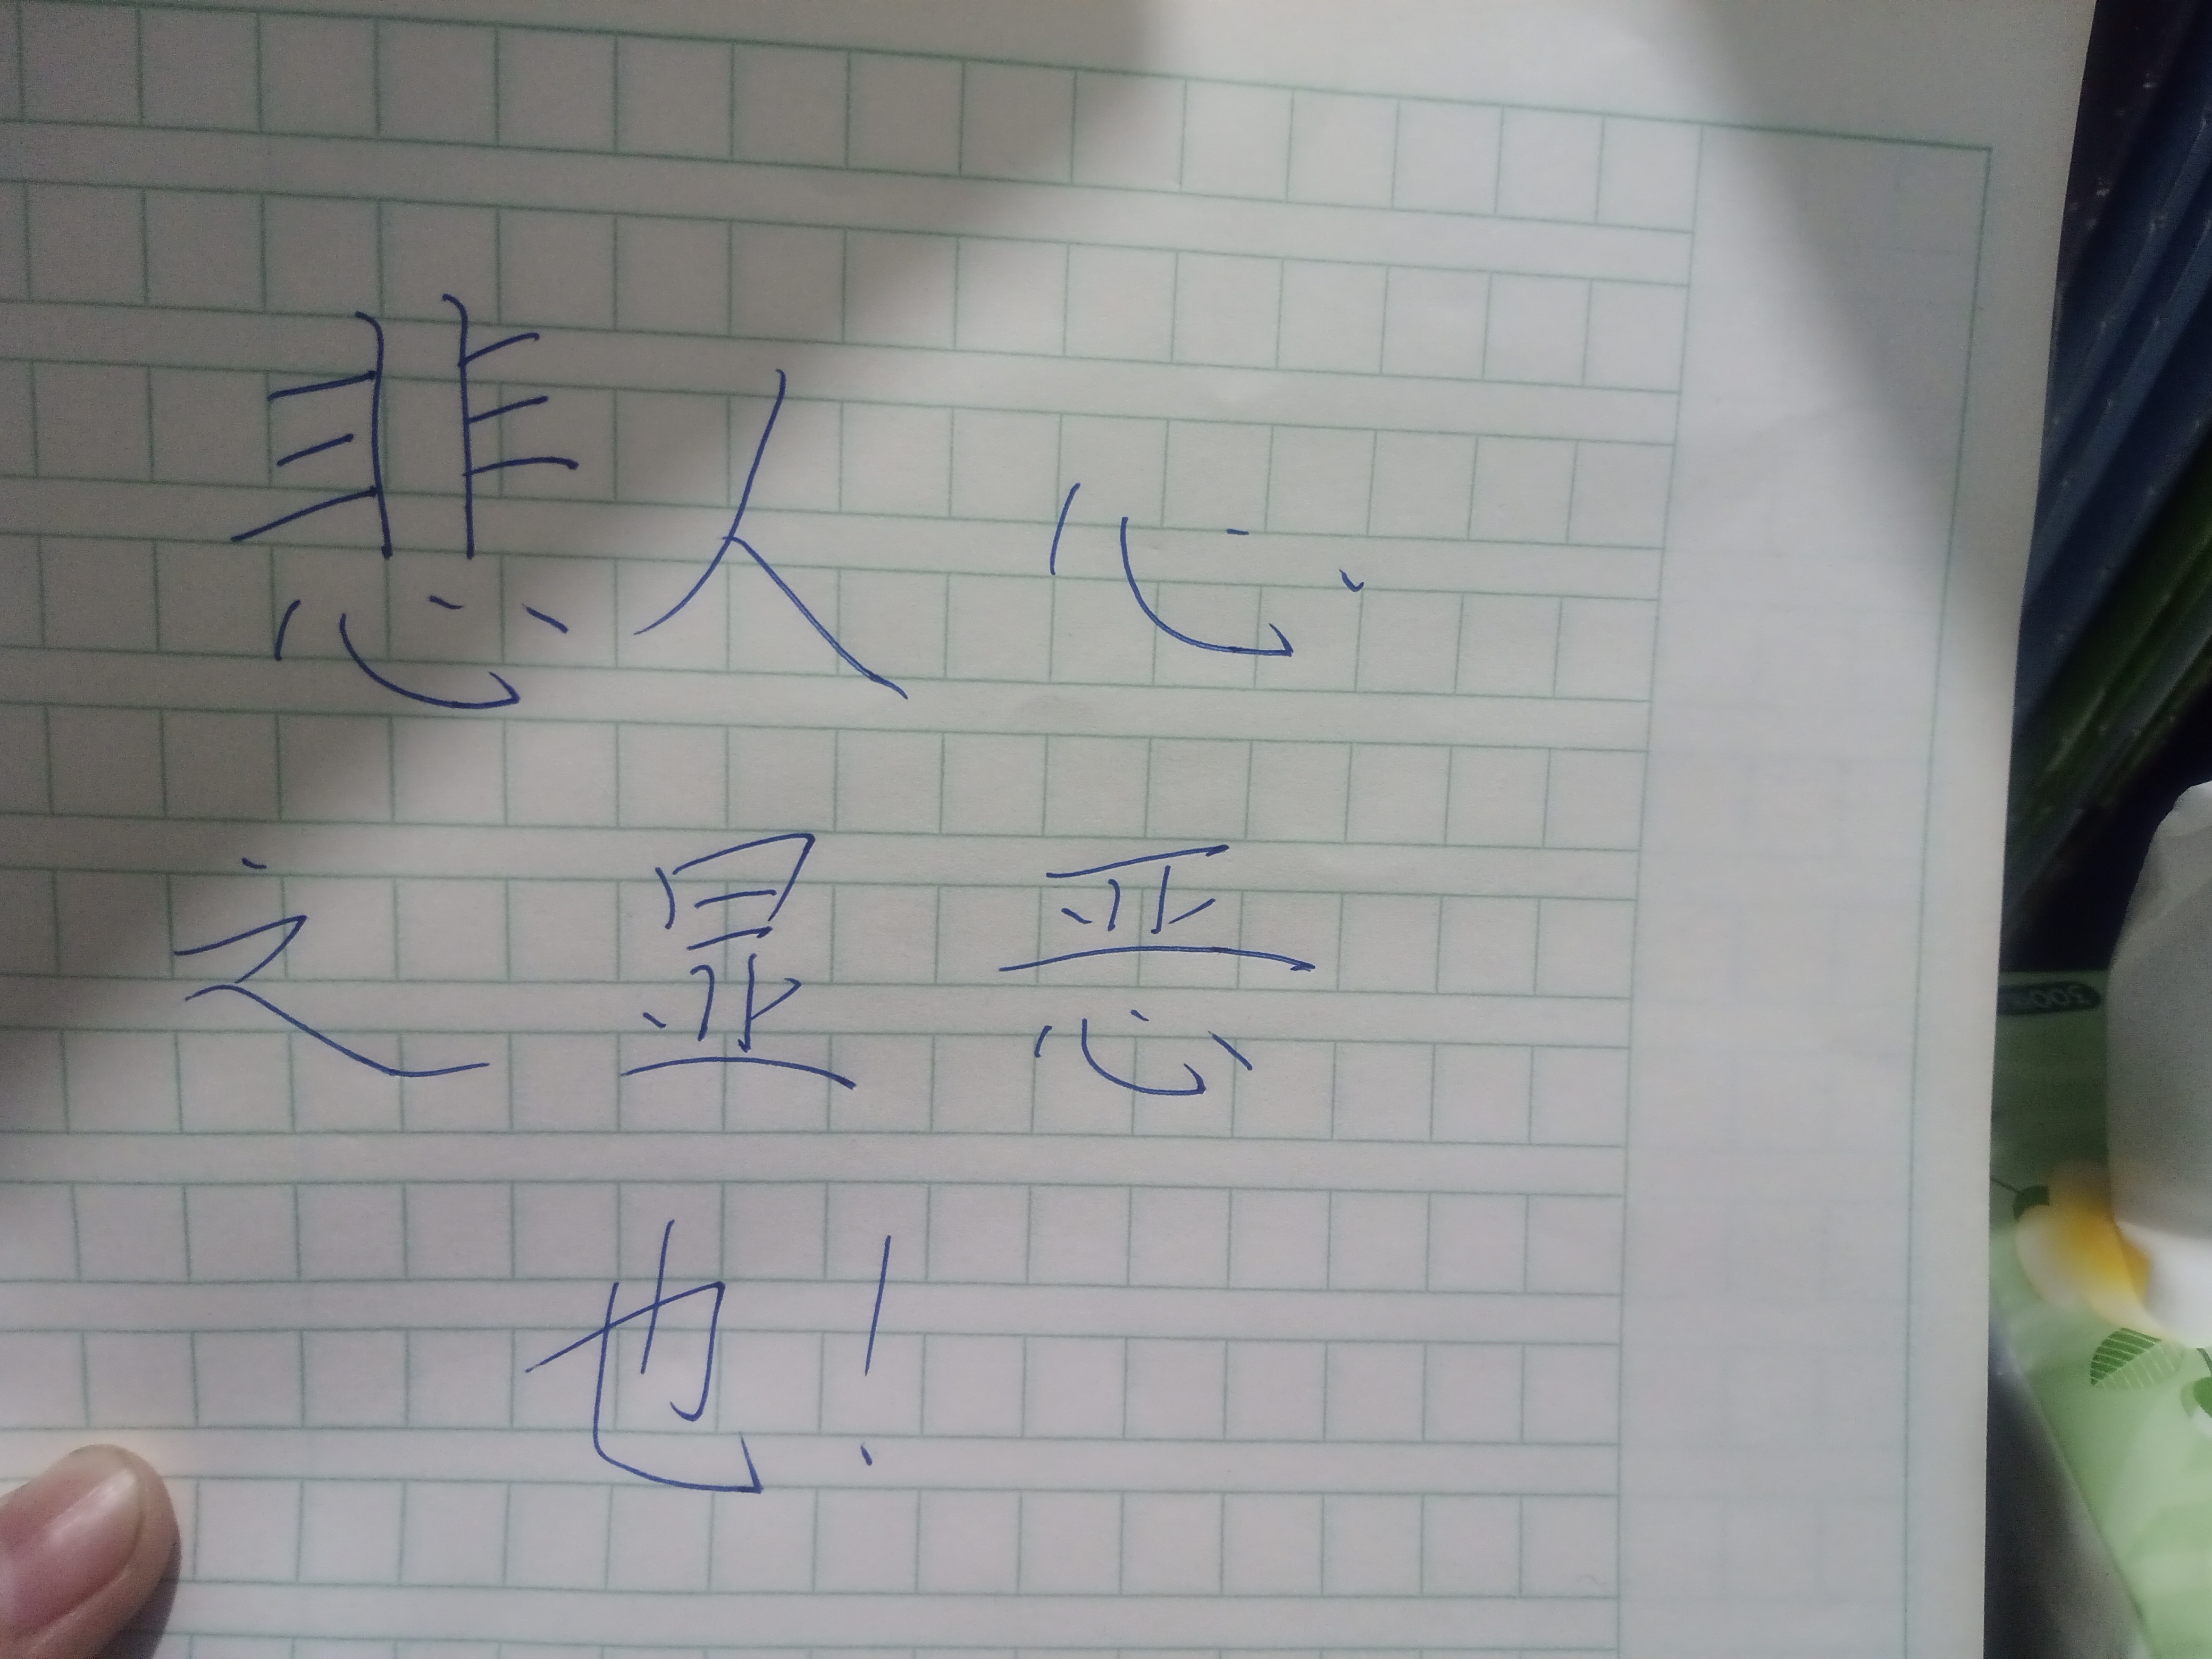 悲人心
之显恶
也!
300